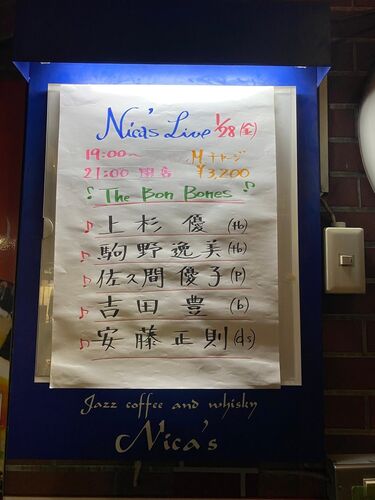 Nica's Live 1/28(金)
19:00~ Mチャージ
21:00 閉店 ¥3,200
The Bon Bones
上杉 優 (tb)
駒野逸美 (tb)
佐久間優子 (p)
吉田 豊 (b)
安藤正則 (ds)
Jazz coffee and whisky
Nica's